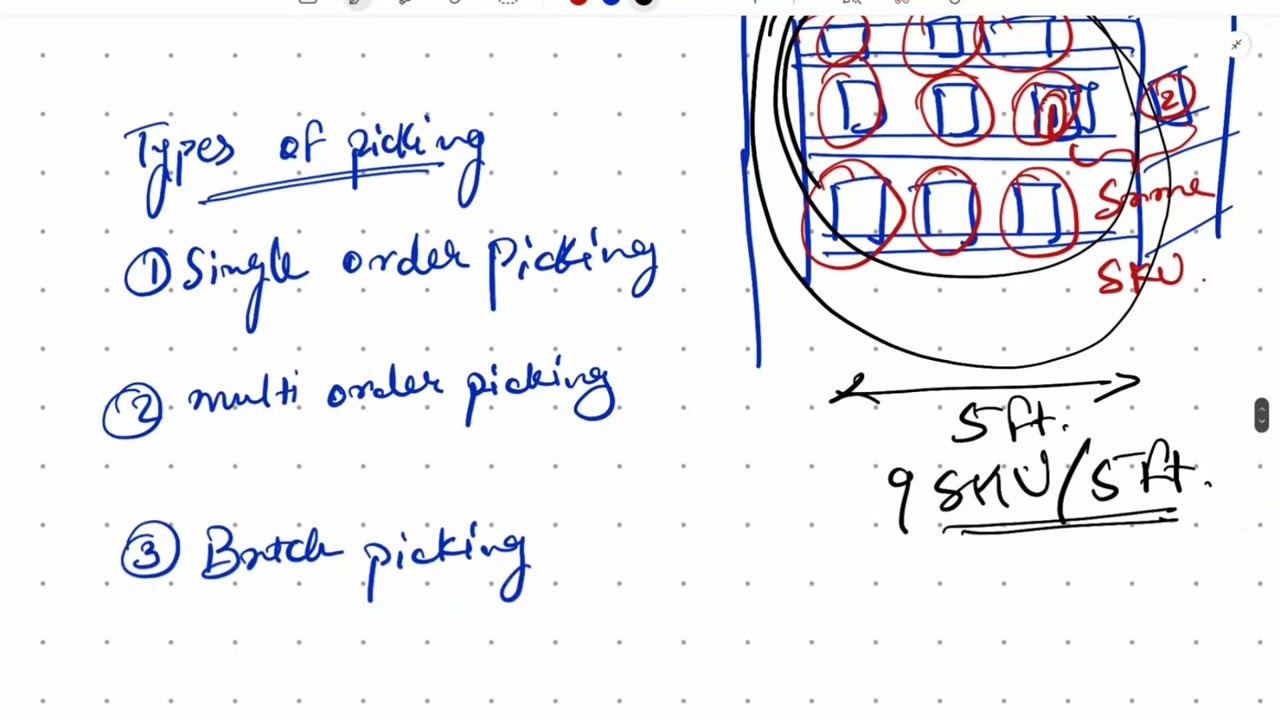 Types of picking
① Single order picking
② multi order picking
③ Batch picking
1
2
Same
SKU.
5 ft.
9 SKU/5 ft.